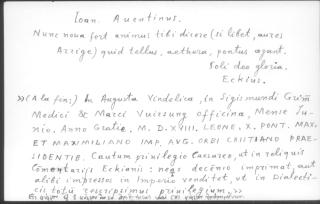 Ioan. Auentinus.
Nunc noua fert animus tibi dicere (si libet, aures
Arrige) quid tellus, aethera, pontus agant.
Soli deo gloria.
Eckius.
»(A la fin:) In Augusta Vindelica, in Sigismundi Grim̄
Medici & Marci Vuirsung officina, Mense Iu-
nio, Anno Gratie, M. D. XVIII, LEONE, X, PONT. MAX,
ET MAXIMILIANO IMP, AVG. ORBI CRISTIANO PRAE-
SIDENTIB. Cautum priuilegio Caesareo, ut in reliquis
Comentarijs Eckianis: neqs decēnio imprimat, aut
alibi impressos in Imperio venditet, ut in Dialecti-
cis totū rescripsimus priuilegium,»